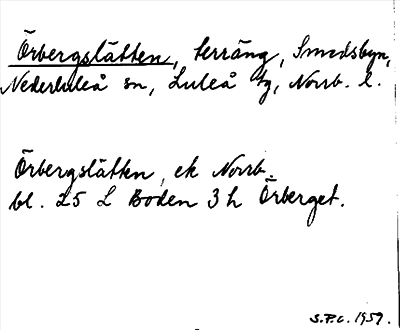 Örbergslätten, terräng, Smedsbyn,
Nederluleå sn, Luleå tg, Norrb. l.
Örbergslätten, ek Norrb.
bl. 25 L Boden 3 h Örberget.
S.P.C. 1959.